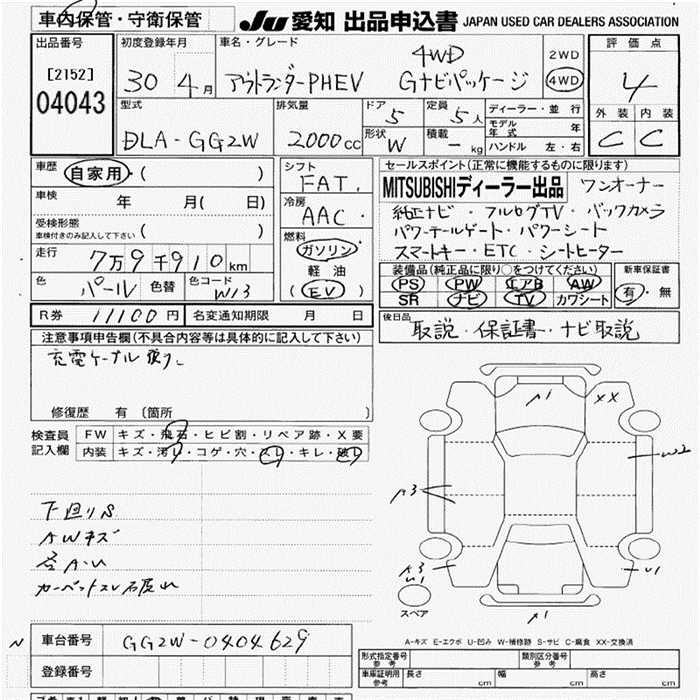 車内保管・守衛保管
JU 愛知 出品申込書 JAPAN USED CAR DEALERS ASSOCIATION
出品番号
[2152]
04043
初度登録年月
30 4月
車名・グレード
アウトランダーPHEV
4WD
Gナビパッケージ
2WD
4WD
評価点
4
外装 内装
C C
型式
DLA-GG2W
排気量
2000cc
ドア 5
形状 W
定員 5人
積載 - kg
ディーラー・並行
モデル年式 年
ハンドル 左・右
車歴 自家用・( )
車検 年 月( 日)
受検形態
車検付きのみ記入して下さい ( )
走行 7万9千910km
色 パール 色替 色コード W13
シフト
FAT.
冷房
AAC・
燃料
ガソリン
軽油
(EV)
セールスポイント(正常に機能するものに限ります)
MITSUBISHIディーラー出品 ワンオーナー
純正ナビ・フルセグTV・バックカメラ
パワーテールゲート・パワーシート
スマートキー・ETC・シートヒーター
装備品(純正品に限り○をつけてください)
PS PW エアB AW
SR ナビ TV カワシート
新車保証書
有・無
R券 11100円 名変通知期限 月 日
後日品
取説・保証書・ナビ取説
注意事項申告欄(不具合内容等は具体的に記入して下さい)
充電ケーブル
修復歴 有 〔箇所 〕
検査員
記入欄
FW キズ・飛石・ヒビ割・リペア跡・X要
内装 キズ・汚レ・コゲ・穴・スレ・キレ・破レ
下回りS
AWキズ
A-U
カーペットスレ
A1
XX
W2
A3
A3
U1
U1
A1
スペア
A-キズ E-エクボ U-凹み W-補修跡 S-サビ C-腐食 XX-交換済
N 車台番号 GG2W-0404629
登録番号
形式指定番号
参考
類別区分番号
参考
車庫証明用
参考
長さ cm 幅 cm 高さ cm